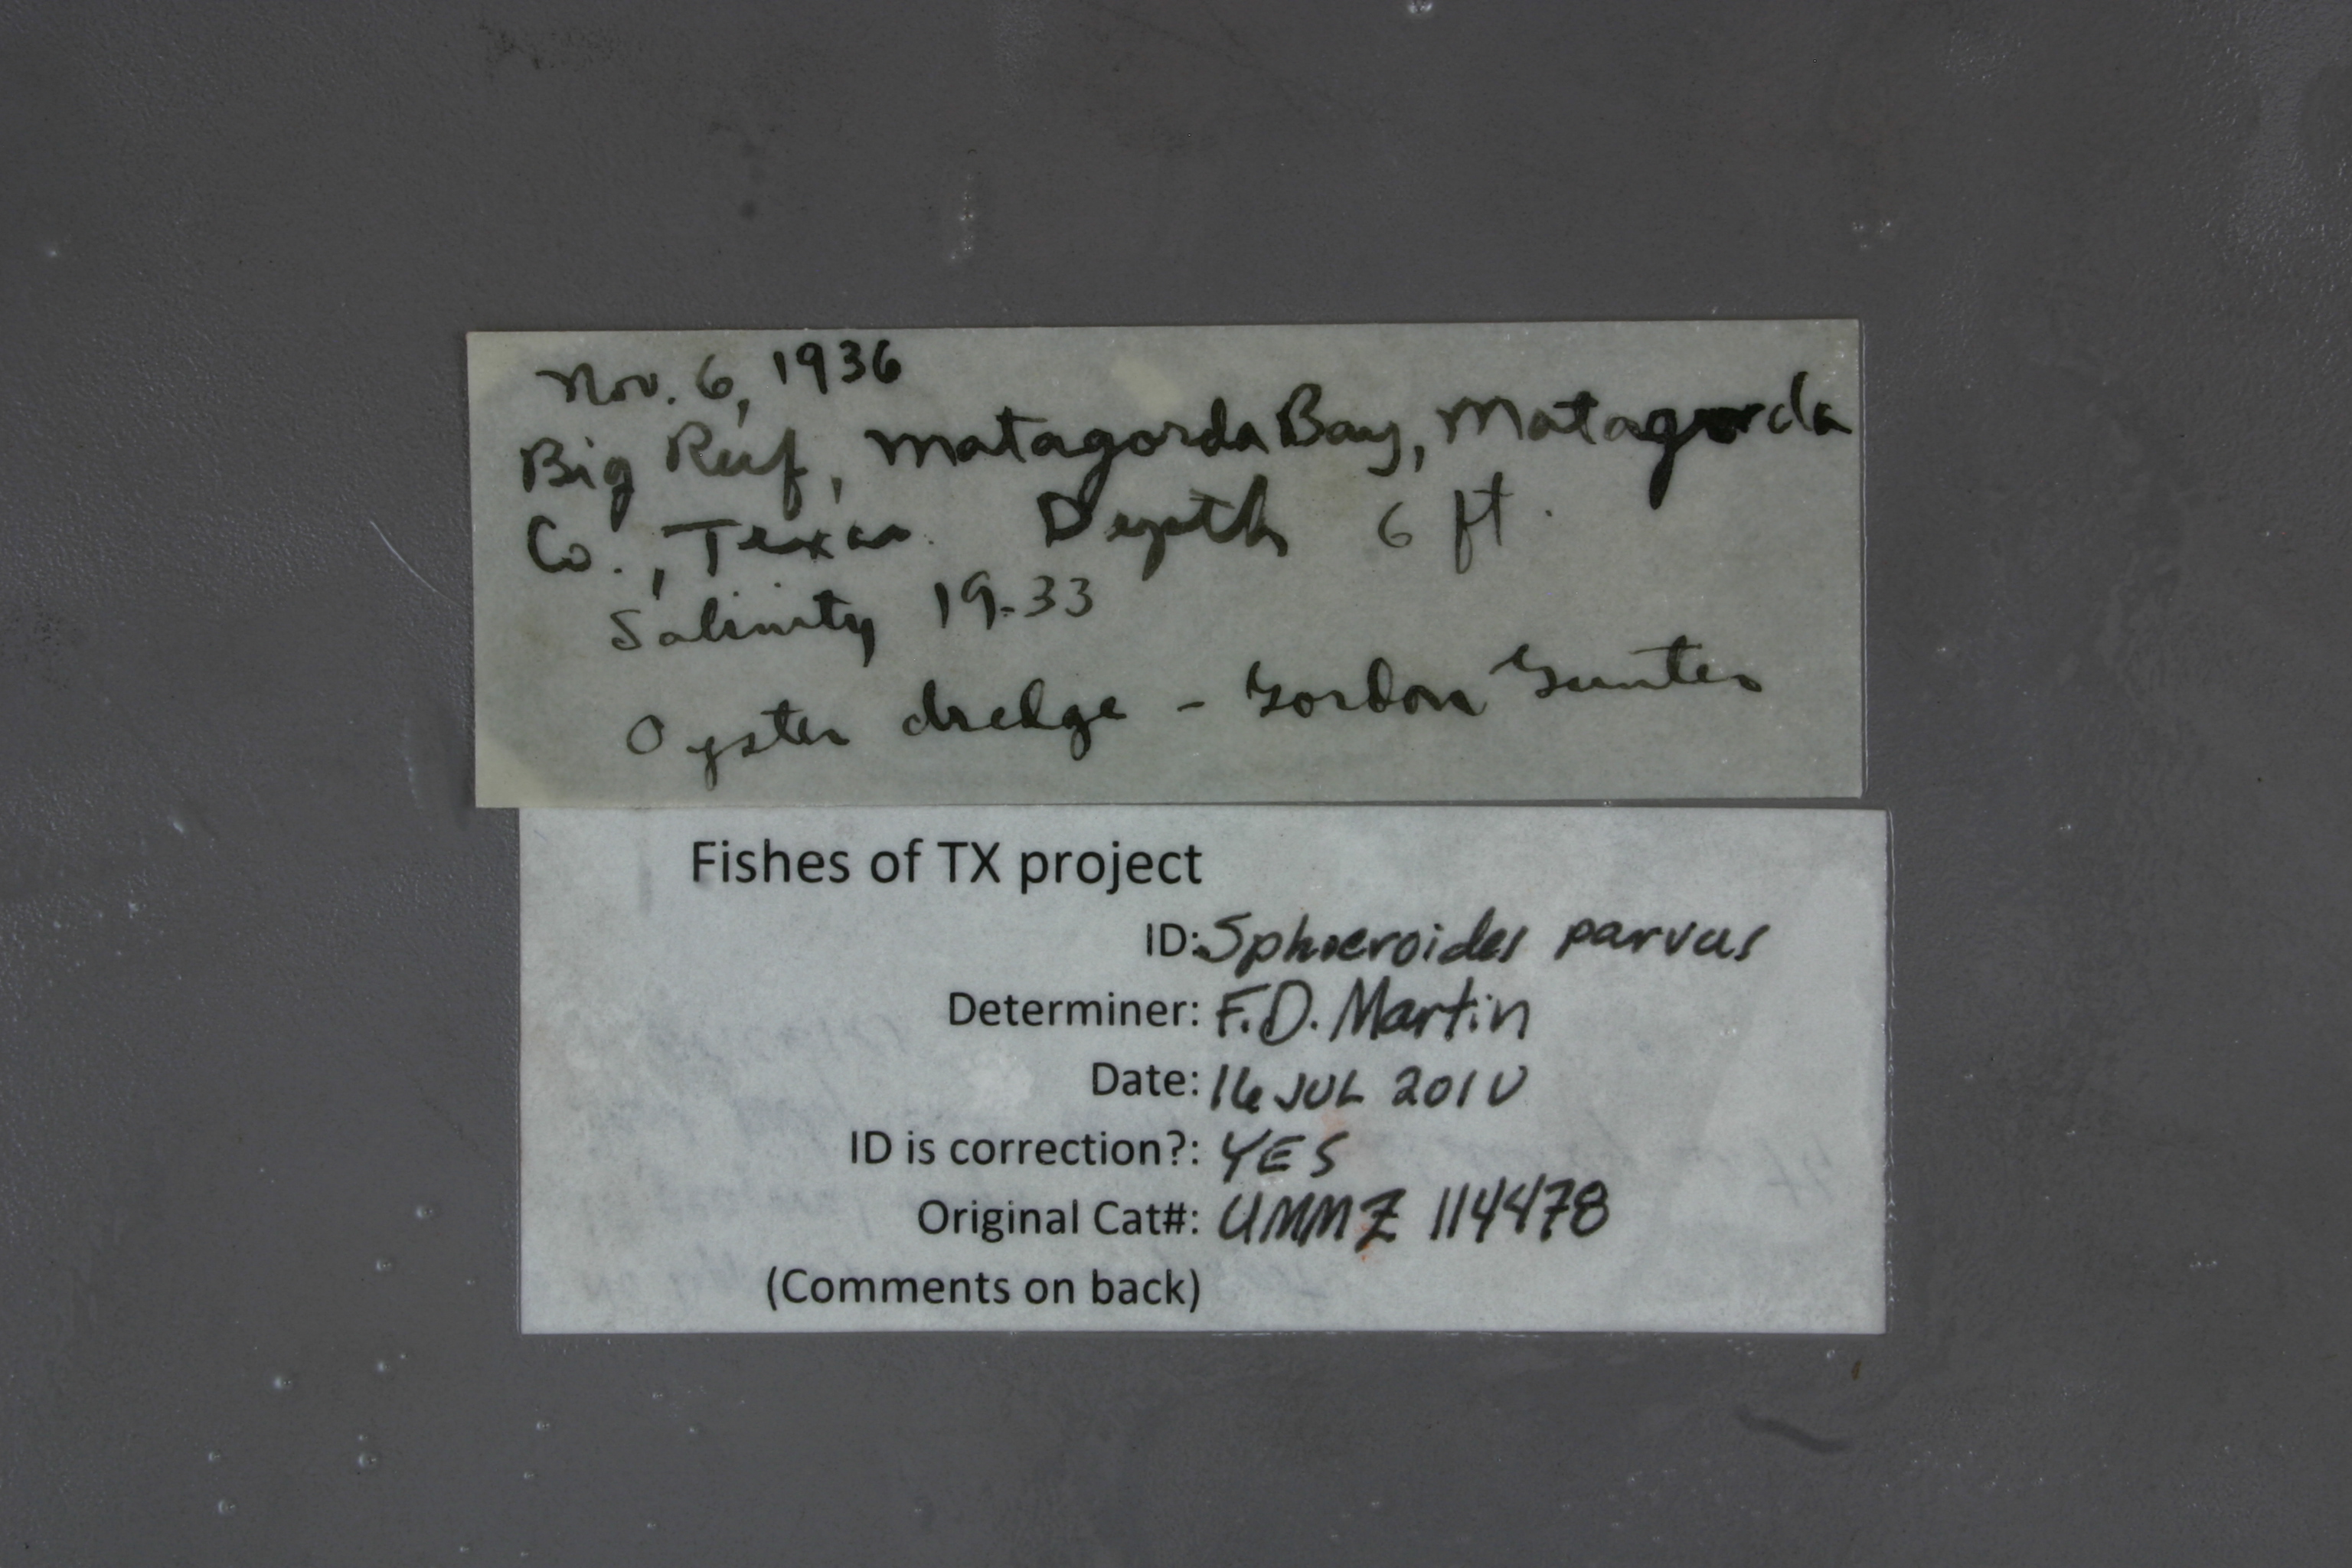 Nov. 6, 1936
Big Reef, Matagorda Bay, Matagorda
Co., Texas. Depth 6 ft.
Salinity 19.33
Oyster dredge - Gordon Gunter
Fishes of TX project
ID: Sphoeroides parvus
Determiner: F.D. Martin
Date: 16 JUL 2010
ID is correction?: YES
Original Cat#: UMMZ 114478
(Comments on back)